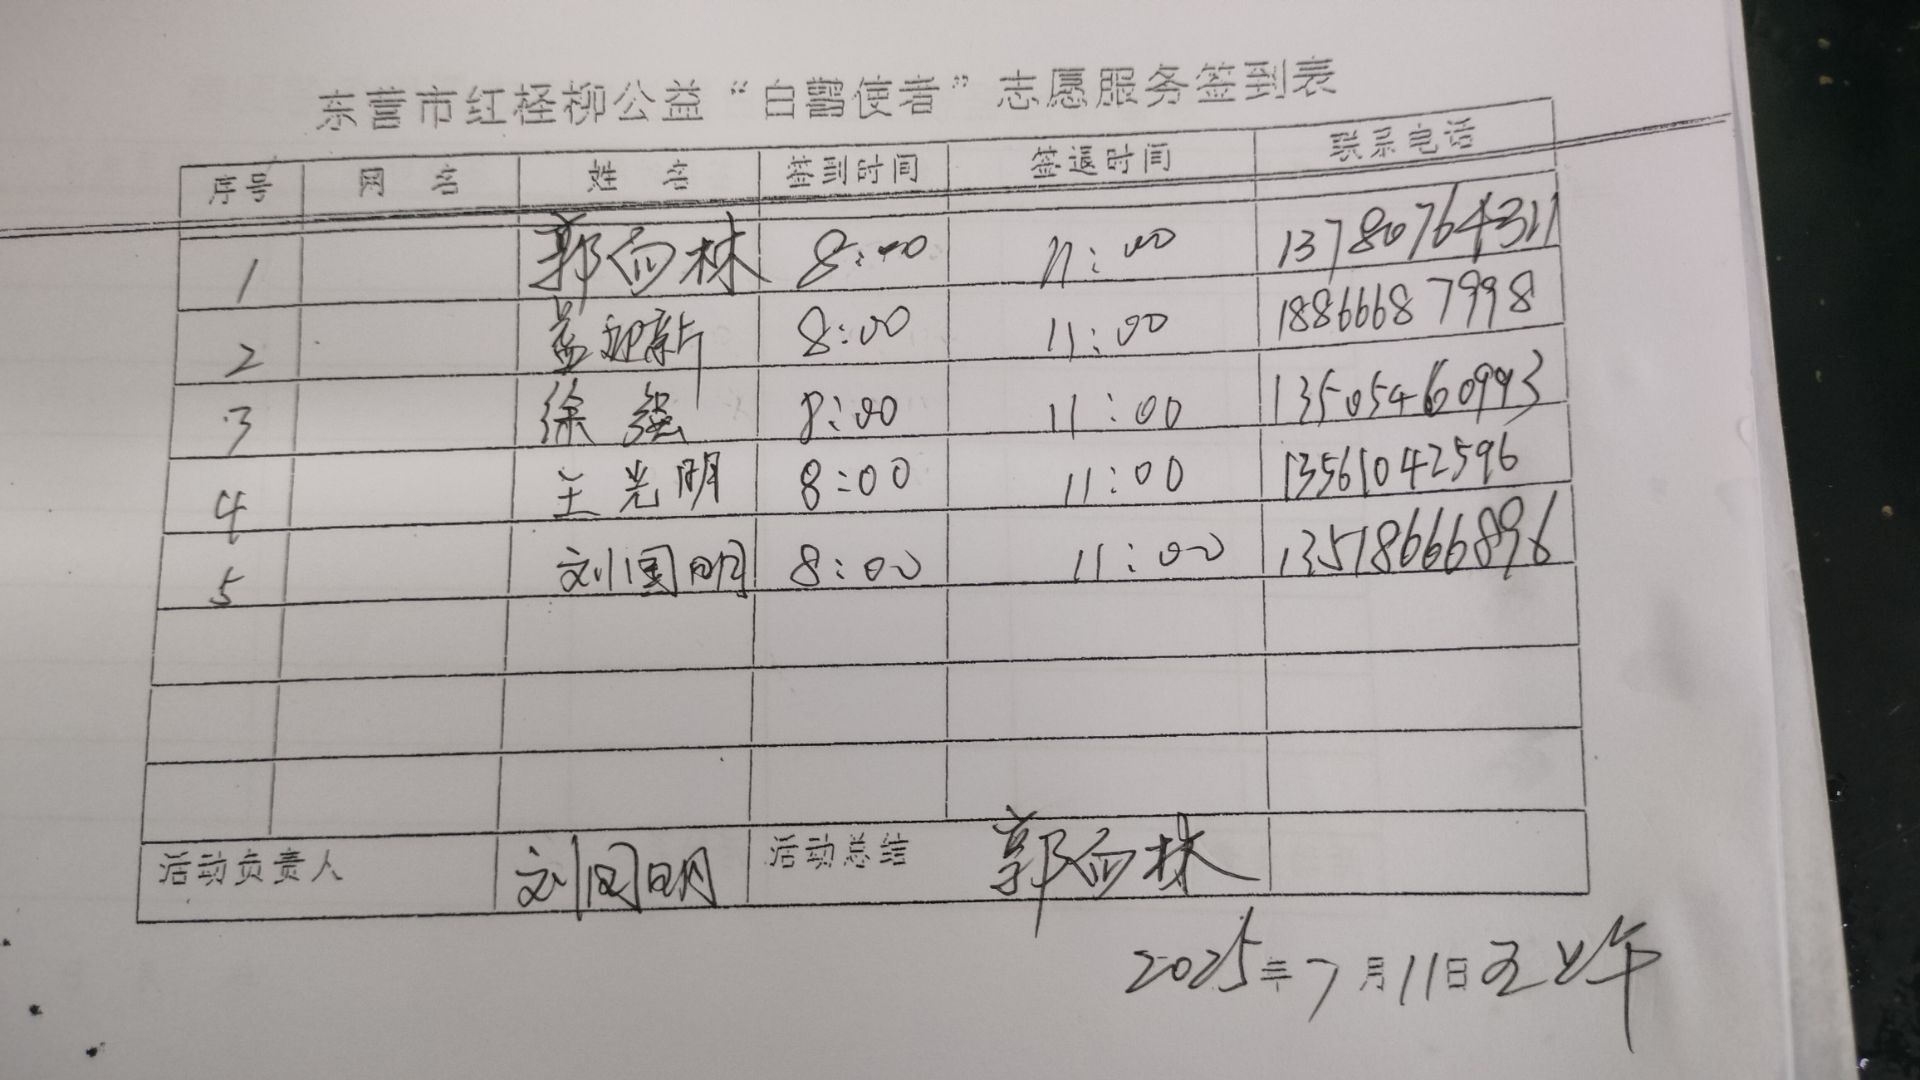 东营市红柽柳公益“白鹭使者”志愿服务签到表
序号 网名 姓名 签到时间 签退时间 联系电话
1 郭向林 8:00 11:00 13780764311
2 盖迎新 8:00 11:00 18866687998
3 徐强 8:00 11:00 13505460993
4 王光明 8:00 11:00 13561042596
5 刘国明 8:00 11:00 13518666896
活动负责人 刘国明 活动总结 郭向林
2025年7月11日五上午